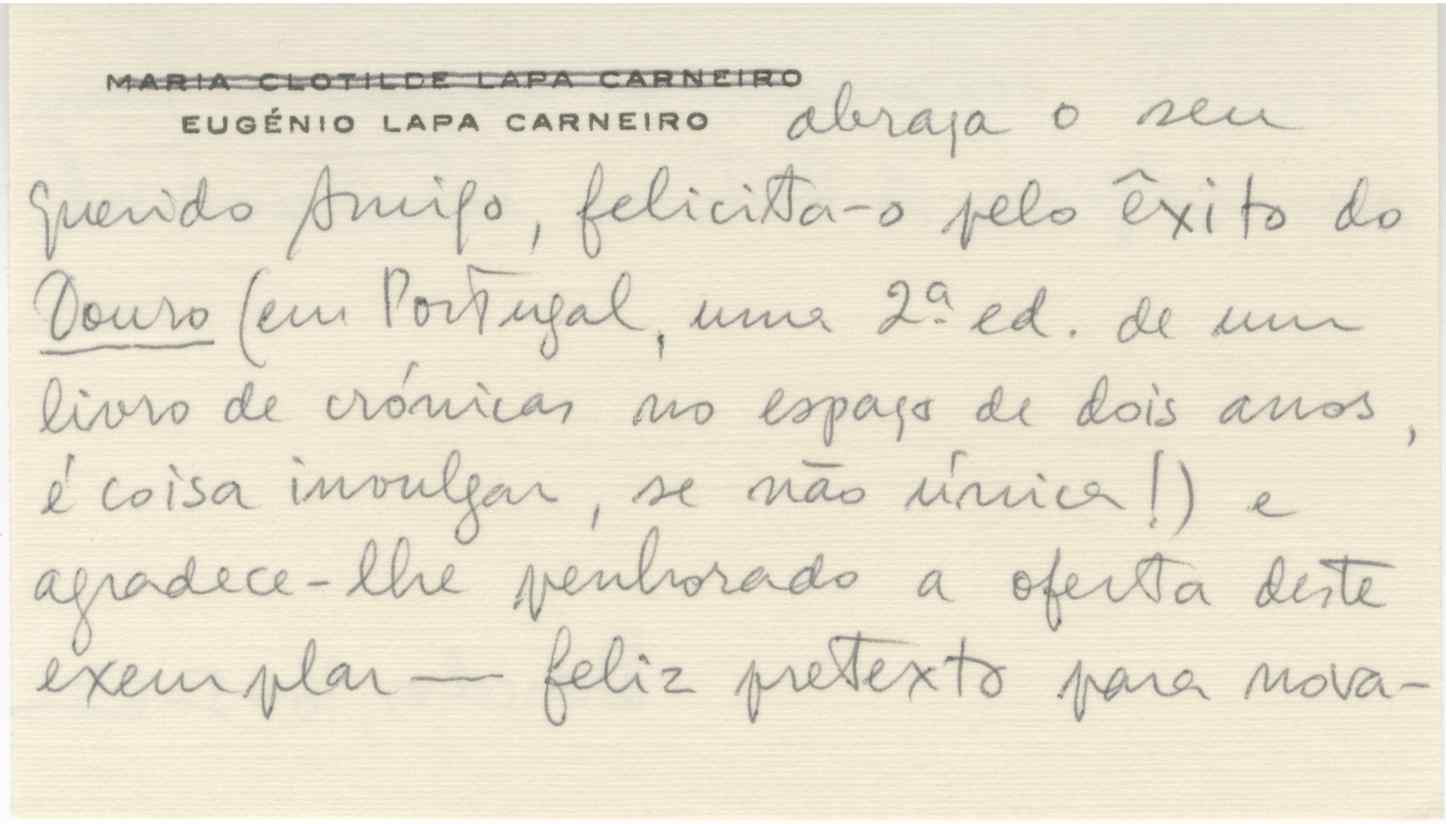 MARIA CLOTILDE LAPA CARNEIRO
EUGÉNIO LAPA CARNEIRO abraça o seu
querido Amigo, felicita-o pelo êxito do
Douro (em Portugal, uma 2ª ed. de um
livro de crónicas no espaço de dois anos,
é coisa invulgar, se não única!) e
agradece-lhe penhorado a oferta deste
exemplar — feliz pretexto para nova-